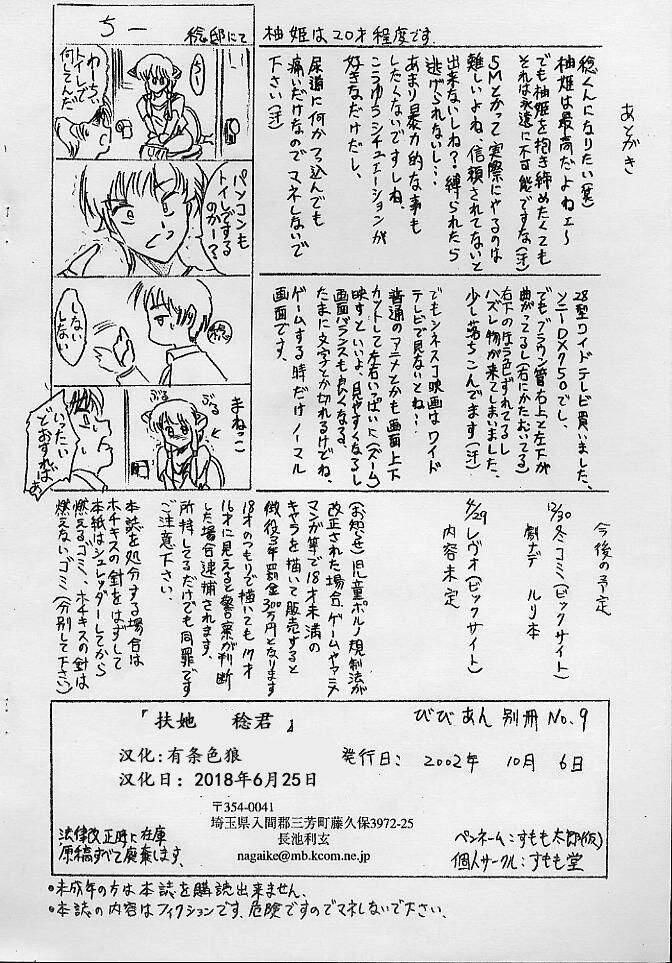 あとがき
稔くんになりたい(笑)
柚姫は最高だよねェ〜
でも柚姫を抱き締めたくても
それは永遠に不可能ですな(汗)
SMとかって実際にやるのは
難しいよね、信頼されてないと
出来ないしね?縛られたら
逃げられないし…
あまり暴力的な事も
したくないですしね、
こうゆうシチュエーションが
好きなだけだし、
尿道に何かつっ込んでも
痛いだけなのでマネしないで
下さい(汗)
柚姫は20才程度です.
稔邸にて
ちー
ちぃ
わーちぃ
トイレで
何してんだ
パソコンも
トイレするのかー?
稔
しない
しない
まねっこ
ぷる
ぷる
いったい
どおすれば
28型ワイドテレビ買いました、
ソニーDX750でし、
でもブラウン管右上と左下が
曲がってるし(右にかたむいてる)
右下の圧う色ずれてるし
ハズレ物が来てしまいました、
少し落ちこんでます(汗)
でもシネスコ映画はワイド
テレビで見ないとね…
普通のアニメとかも画面上下
カットして左右いっぱいに(ズーム)
映すといいよ、見やすくなるし
画面バランスも良くなる、
たまに文字とか切れるけどね、
ゲームする時だけノーマル
画面です、
今後の予定
12/30冬コミ(ビックサイト)
劇ナデ ルリ本
4/29レヴォ(ビックサイト)
内容未定
(お知らせ)児童ポルノ規制法が
改正された場合、ゲームやアニメ
マンガ等で18才未満の
キャラを描いて販売すると
懲役3年罰金300万円となります
18才のつもりで描いても17才
16才に見えると警察が判断
した場合逮捕されます、
所持してるだけでも同罪です
ご注意下さい、
本誌を処分する場合は
ホチキスの針をはずして
本紙はシュレッダーしてから
燃えるゴミ、ホチキスの針は
燃えないゴミ(分別して下さい)
『扶她 稔君』
びびあん 別冊 No.9
汉化:有条色狼
発行日: 2002年 10月 6日
汉化日: 2018年6月25日
〒354-0041
埼玉県入間郡三芳町藤久保3972-25
長池利玄
nagaike@mb.kcom.ne.jp
法律改正時に在庫
原稿すべて廃棄します.
ペンネーム:すもも太郎(仮)
個人サークル:すもも堂
•未成年の方は本誌を購読出来ません.
•本誌の内容はフィクションです、危険ですのでマネしないで下さい.